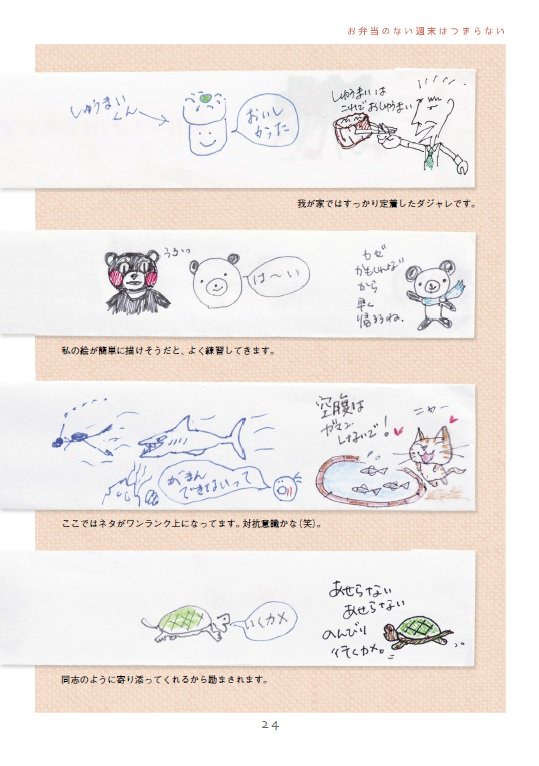 お弁当のない週末はつまらない
しゅうまいは
これでおしゅうまい
しゅうまい
くん
おいし
かった
我が家ではすっかり定着したダジャレです。
うるっ
は〜い
カゼ
かもしんねだ
から
早く
帰るね。
私の絵が簡単に描けそうだと、よく練習してきます。
空腹は
ガマン
しないで!
ニャー
がまん
できないって
ここではネタがワンランク上になってます。対抗意識かな(笑)。
あせらない
あせらない
のんびり
行くカメ。
いくカメ
同志のように寄り添ってくれるから励まされます。
24